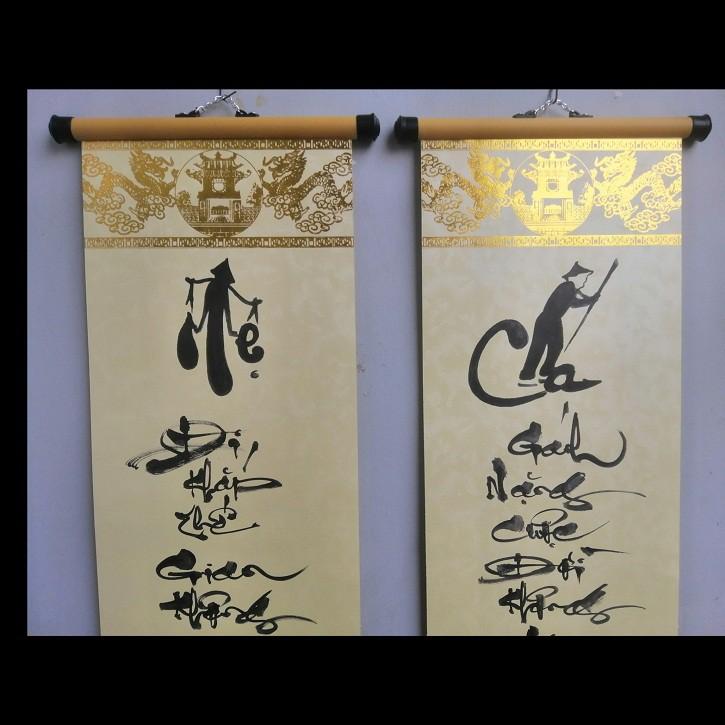 Mẹ
Đi
Khắp
Thế
Gian
Không
Cha
Gánh
Nặng
Cuộc
Đời
Không